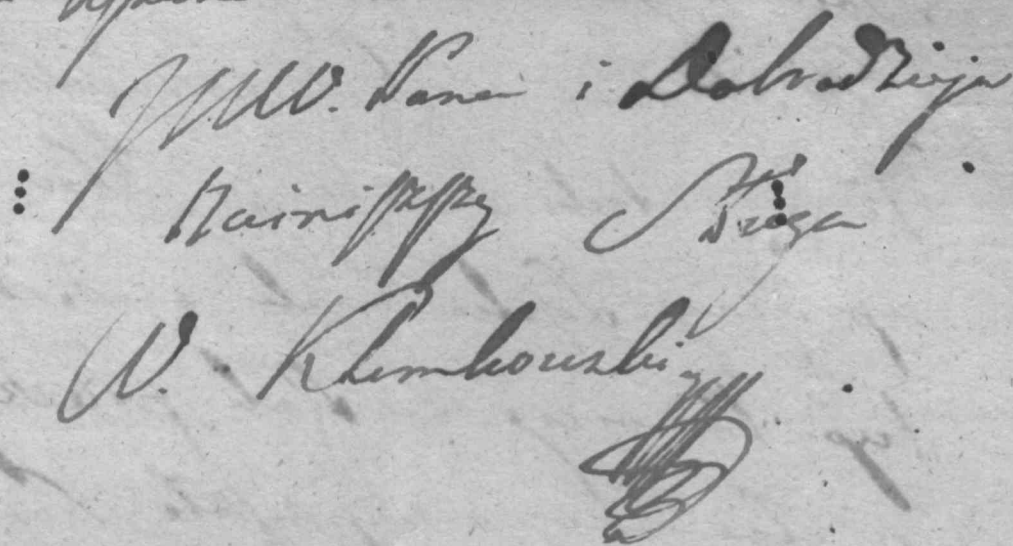 JWW. Pana i Dobrodzieja
Nainiższy Sługa
W. Klembowski